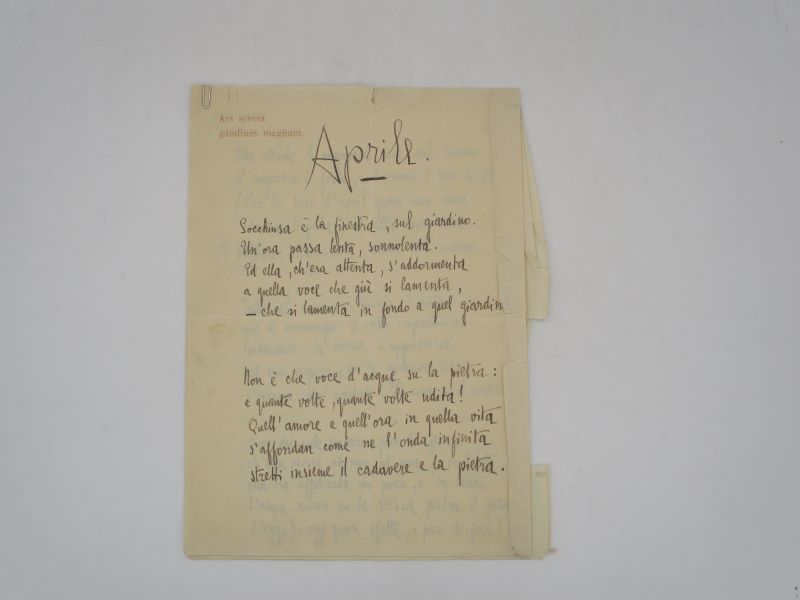 Ars severa
gaudium magnum.
Aprile.
Socchiusa è la finestra, sul giardino.
Un'ora passa lenta, sonnolenta.
Ed ella, ch'era attenta, s'addormenta
a quella voce che giù si lamenta,
— che si lamenta in fondo a quel giardin
Non è che voce d'acque su la pietra:
e quante volte, quante volte udita!
Quell'amore e quell'ora in quella vita
s'affondan come ne l'onda infinita
stretti insieme il cadavere e la pietra.